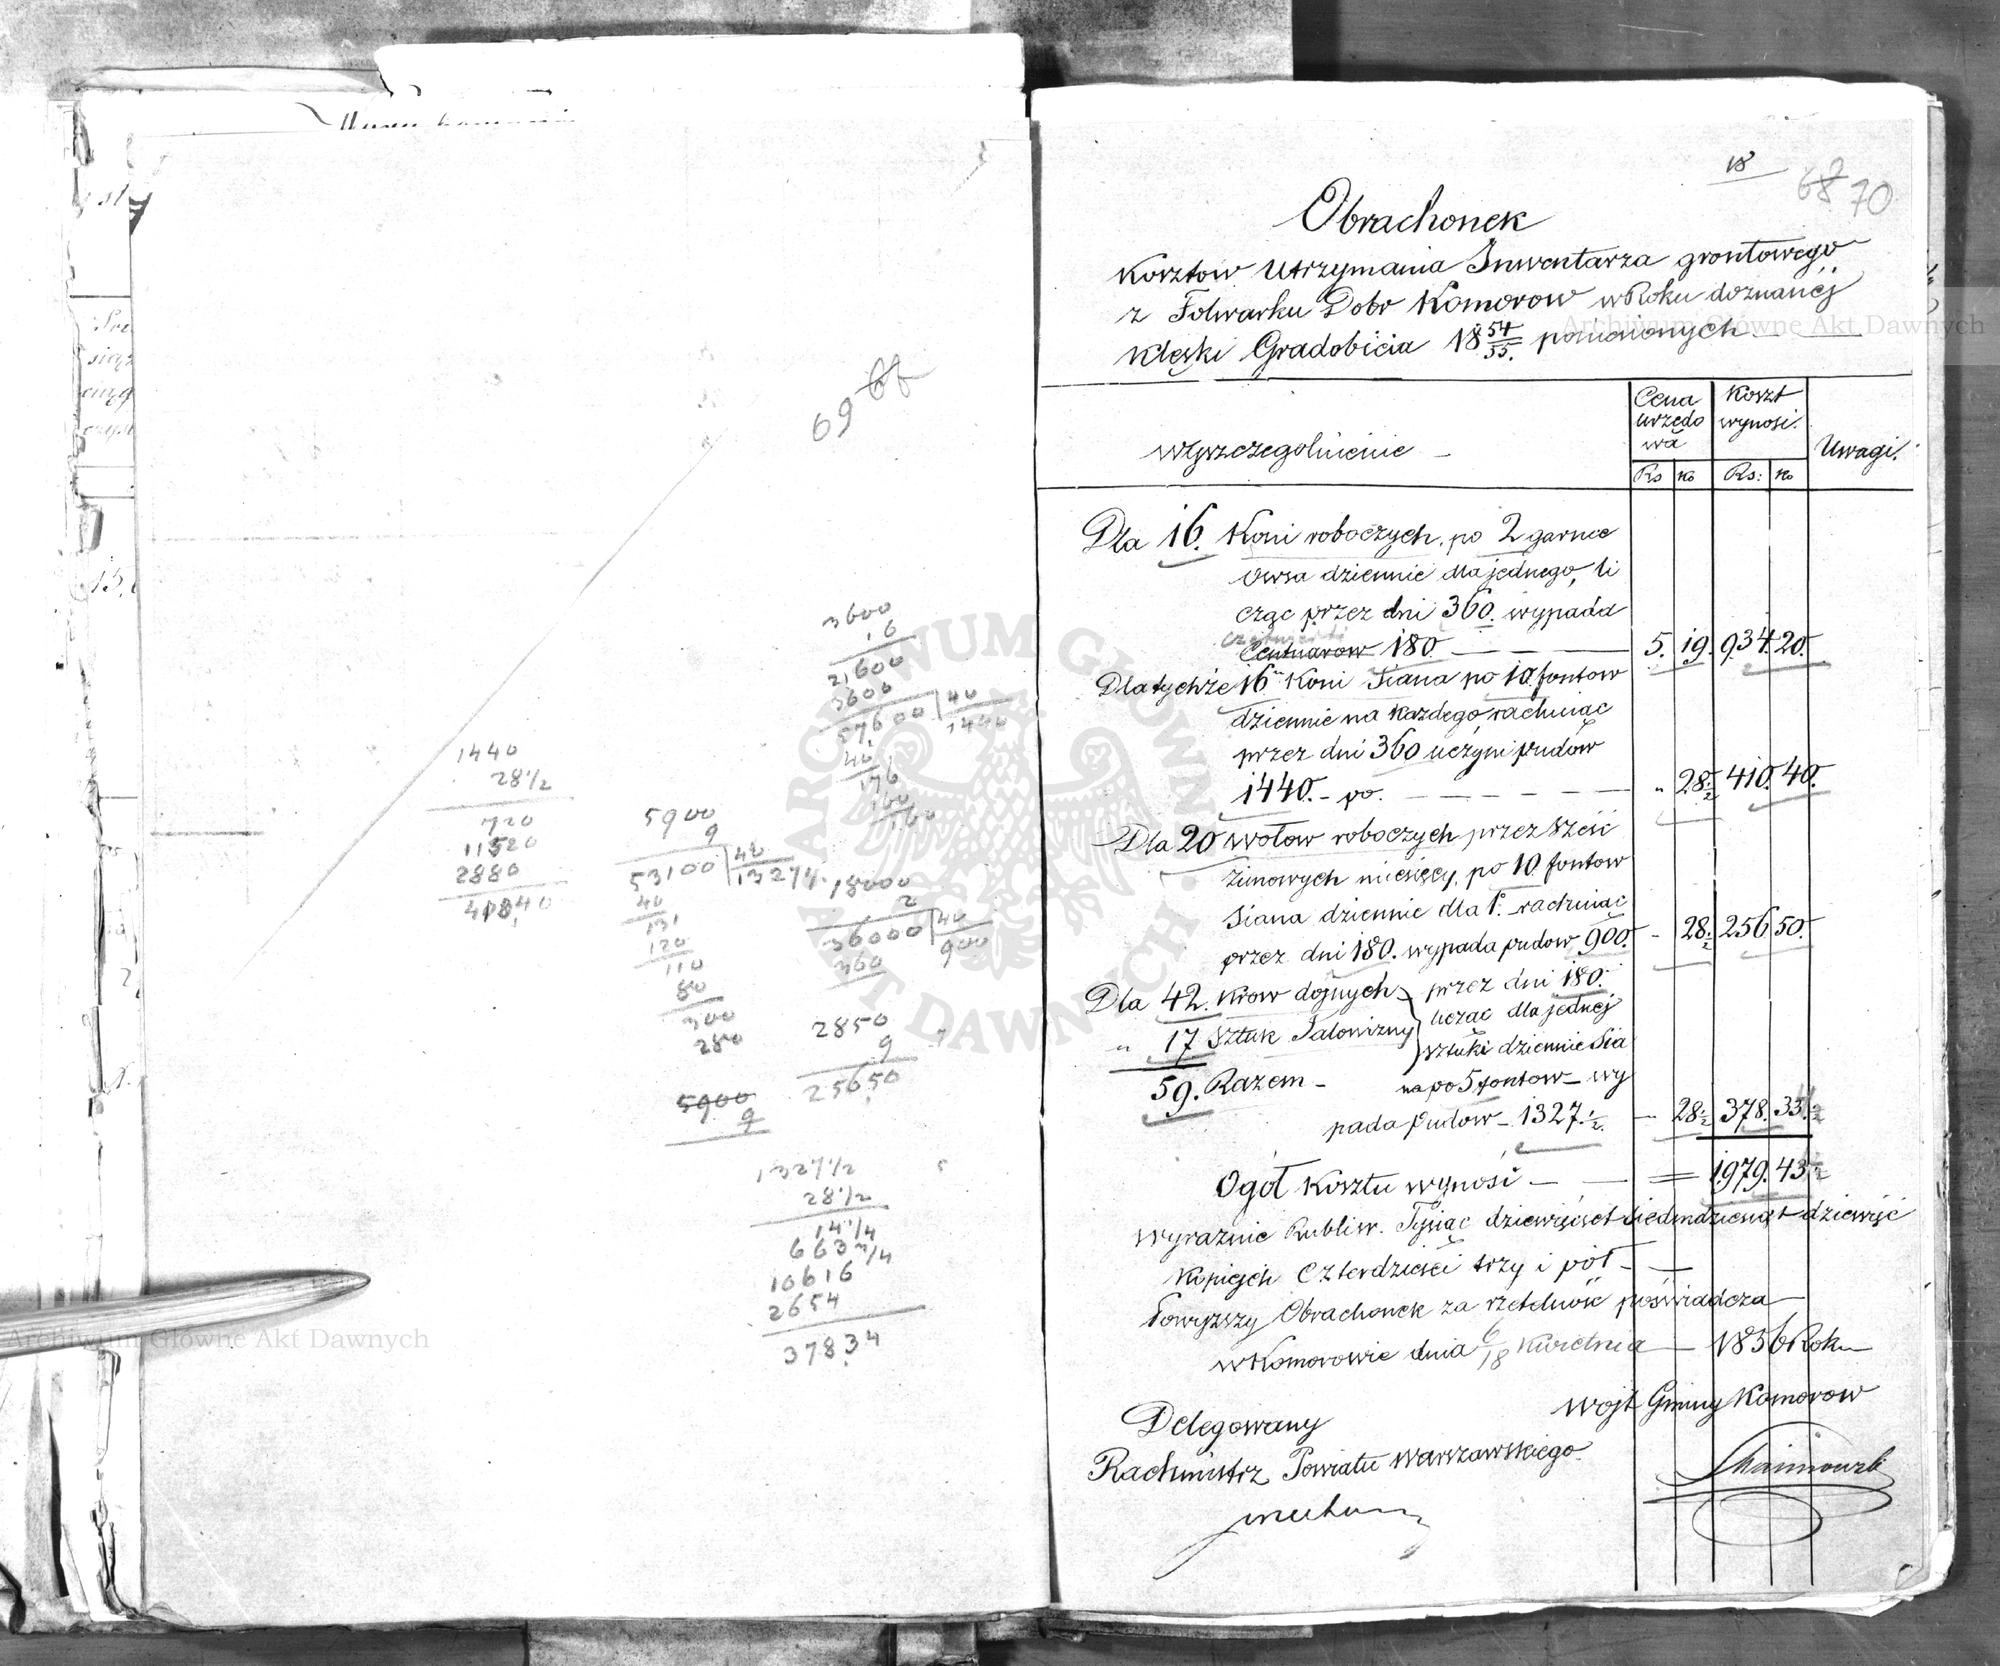 69
1440
28 1/2
720
11520
2880
41040
5900
9
53100 | 40
1327 1/2
40
131
120
110
80
300
280
5900
9
3600
16
21600
3600
57600 | 40
1440
40
176
160
160
18000
2
36000 | 40
900
360
2850
9
25650
1327 1/2
28 1/2
14 1/4
663 3/4
10616
2654
37834
18
70
Obrachonek
Kosztow Utrzymania Inwentarza grontowego
z Folwarku Dobr Komorow w Roku doznanéj
Klęski Gradobicia 18 54/55. poniesionych
Wyszczegolnienie
Cena urzędowa
Koszt wynosi.
Uwagi.
Rs Ko Rs: Ko
Dla 16. Koni roboczych, po 2 garnce
owsa dziennie dla jednego, li
cząc przez dni 360. wypada
180. 5. 19. 934. 20.
Dla tychże 16 Koni Siana po 10. fontow
dziennie na każdego rachuiąc
przez dni 360 uczyni pudow
1440. - po. " 28 1/2 410. 40.
Dla 20 wołow roboczych przez sześć
zimowych miesięcy, po 10 fontow
Siana dziennie dla 1. rachuiąc
przez dni 180. wypada pudow 900. - 28 1/2 256. 50.
Dla 42. Krow dojnych przez dni 180.
" 17 Sztuk Jałowizny licząc dla jednej
sztuki dziennie Sia
59. Razem - na po 5 fontow - wy
pada Pudow - 1327. 1/2. - 28 1/2 378. 33 1/2
Ogół Kosztu wynosi - = 1979. 43 1/2
Wyraźnie Rubli sr. Tysiąc dziewięćset siedmdziesiąt dziewięć
Kopiejek Czterdzieści trzy i pół -
Powyższy Obrachonek za rzetelność poświadcza
w Komorowie dnia 6/18 Kwietnia 1856 Roku
Wójt Gminy Komorow
Delegowany
Rachmistrz Powiatu Warszawskiego
ARCHIWUM GŁÓWNE AKT DAWNYCH
Archiwum Główne Akt Dawnych
Archiwum Główne Akt Dawnych